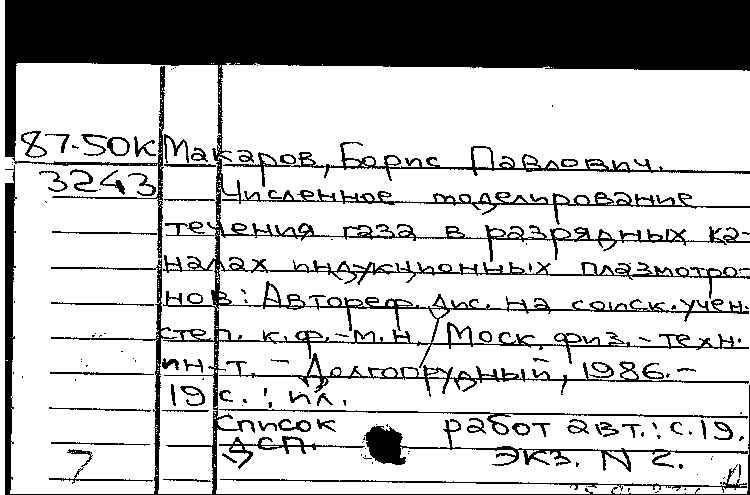 87-50К Макаров, Борис Павлович.
3243 Численное моделирование
течения газа в разрядных ка-
налах индукционных плазмотро-
нов: Автореф. дис. на соиск. учен.
степ. к.ф.-м.н. Моск. физ.-техн.
ин-т. - Долгопрудный, 1986.-
19 с.: ил.
Список работ авт.: с.19.
ДСП. Экз. N 2.
7 Д